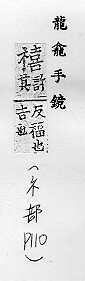 龍龕手鏡
禧 許其
反福也吉也
(ネ部
P110)